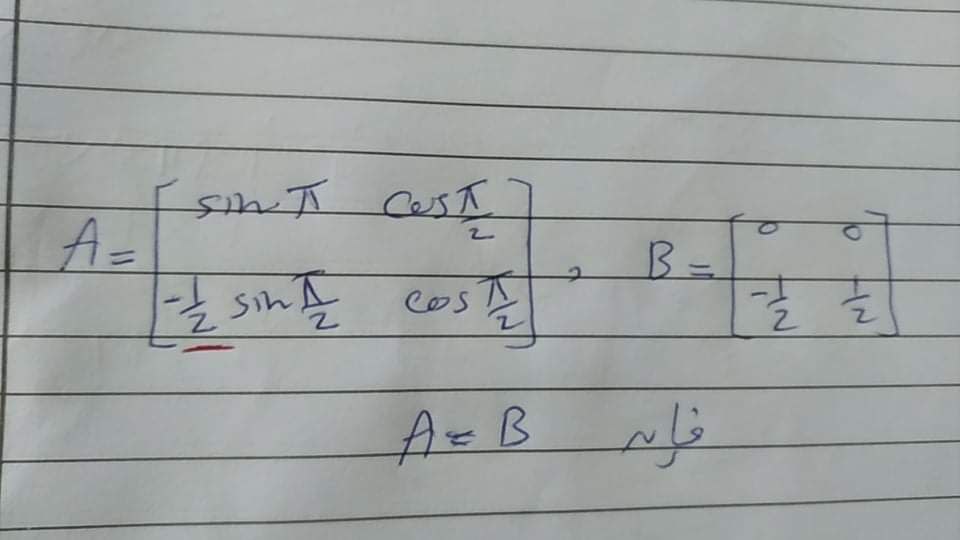 A = [ sin π cos π/2 ; -1/2 sin π/2 cos π/2 ] , B = [ 0 0 ; -1/2 1/2 ]
فإن A = B